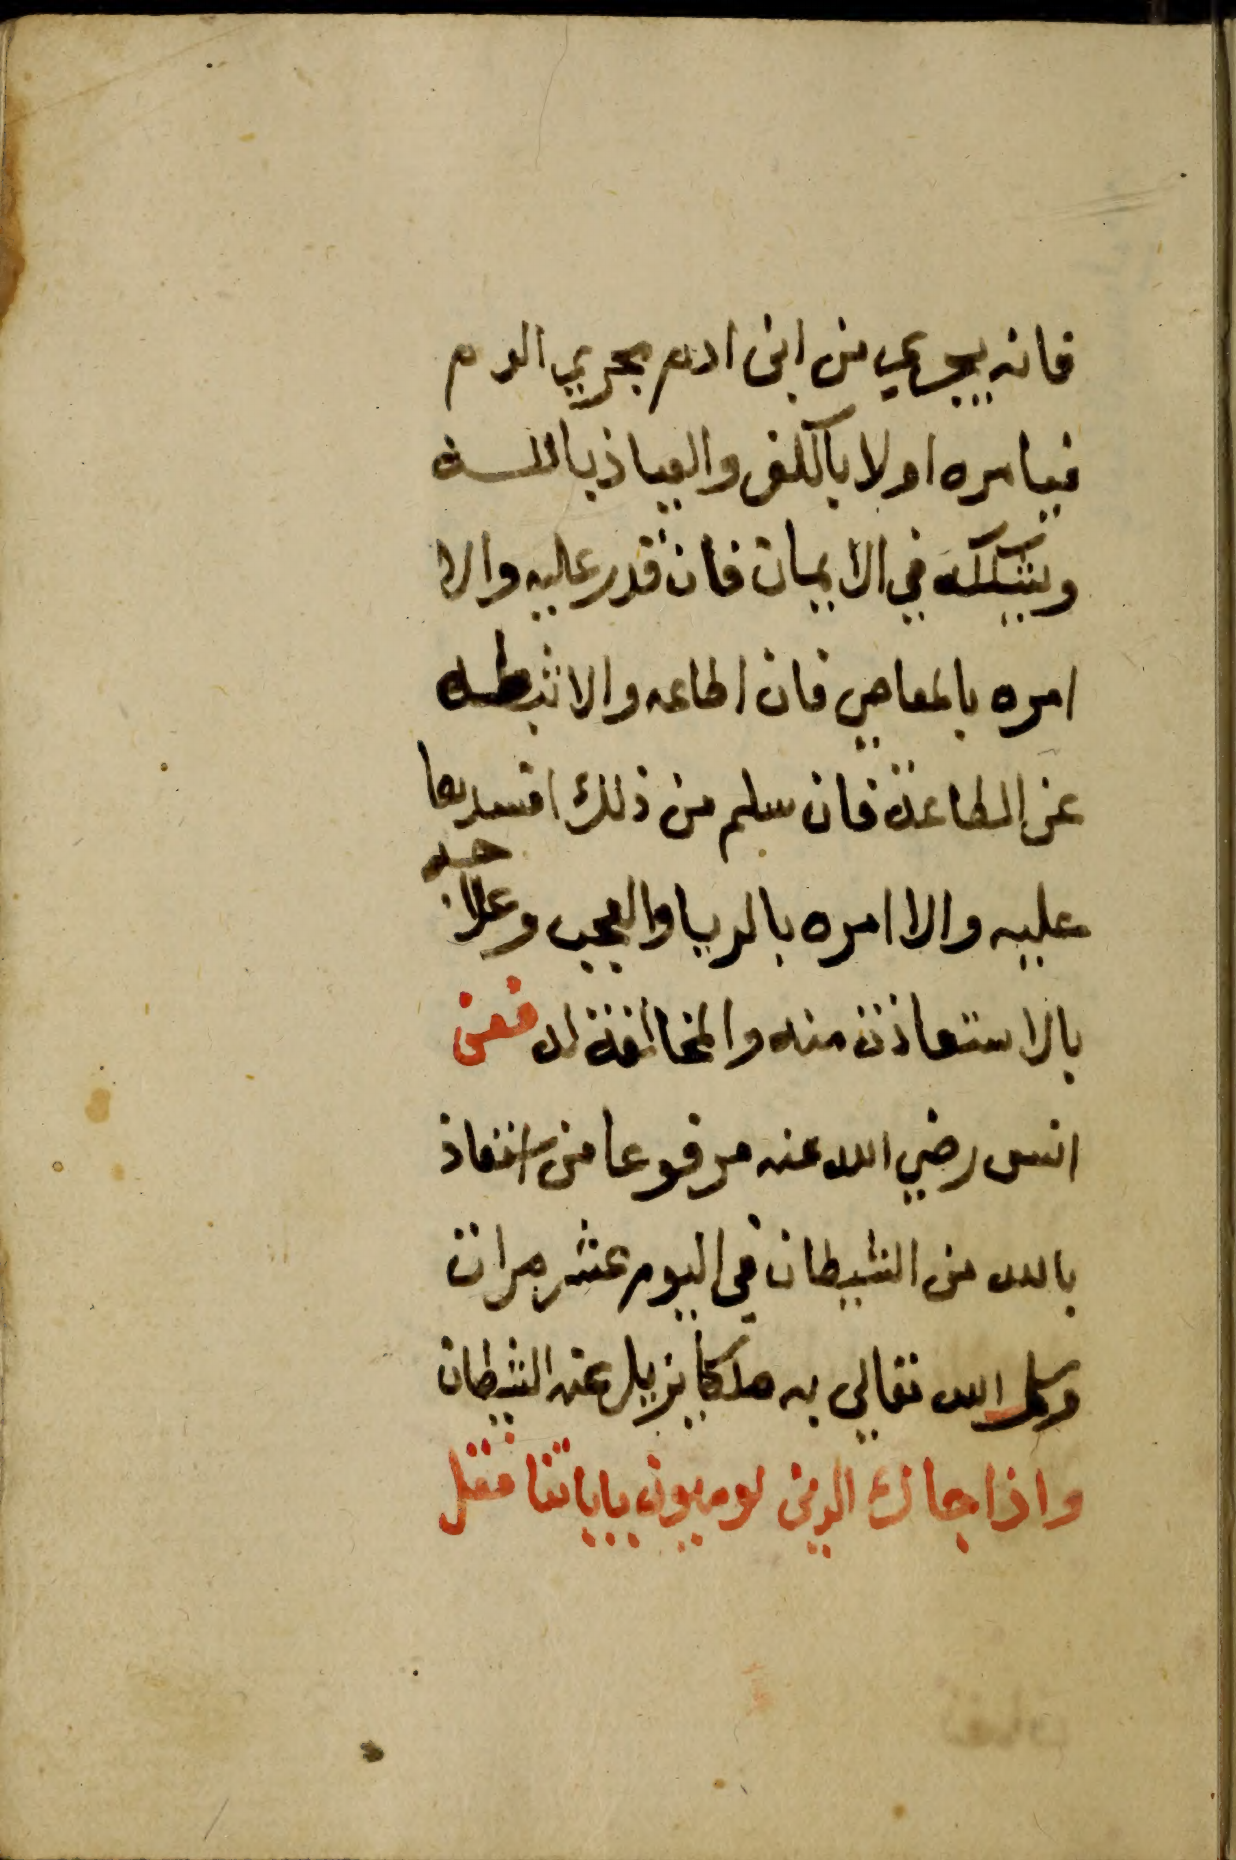 فانه يجري من ابن ادم مجري الدم
فيامره اولا بالكفر والعياذ بالله
ويشككه في الايمان فان قدر عليه والا
امره بالمعاصي فان اطاعه والا ثبطه
عن الطاعة فان سلم من ذلك افسدها
عليه والا امره بالريا والعجب وعلاجه
بالاستعاذة منه والمخالفة له فعن
انس رضي الله عنه مرفوعا من استعاذ
بالله من الشيطان في اليوم عشر مرات
وكل الله تعالي به ملكا يزيل عنه الشيطان
واذا جاك الذين يومنون باياتنا فقل